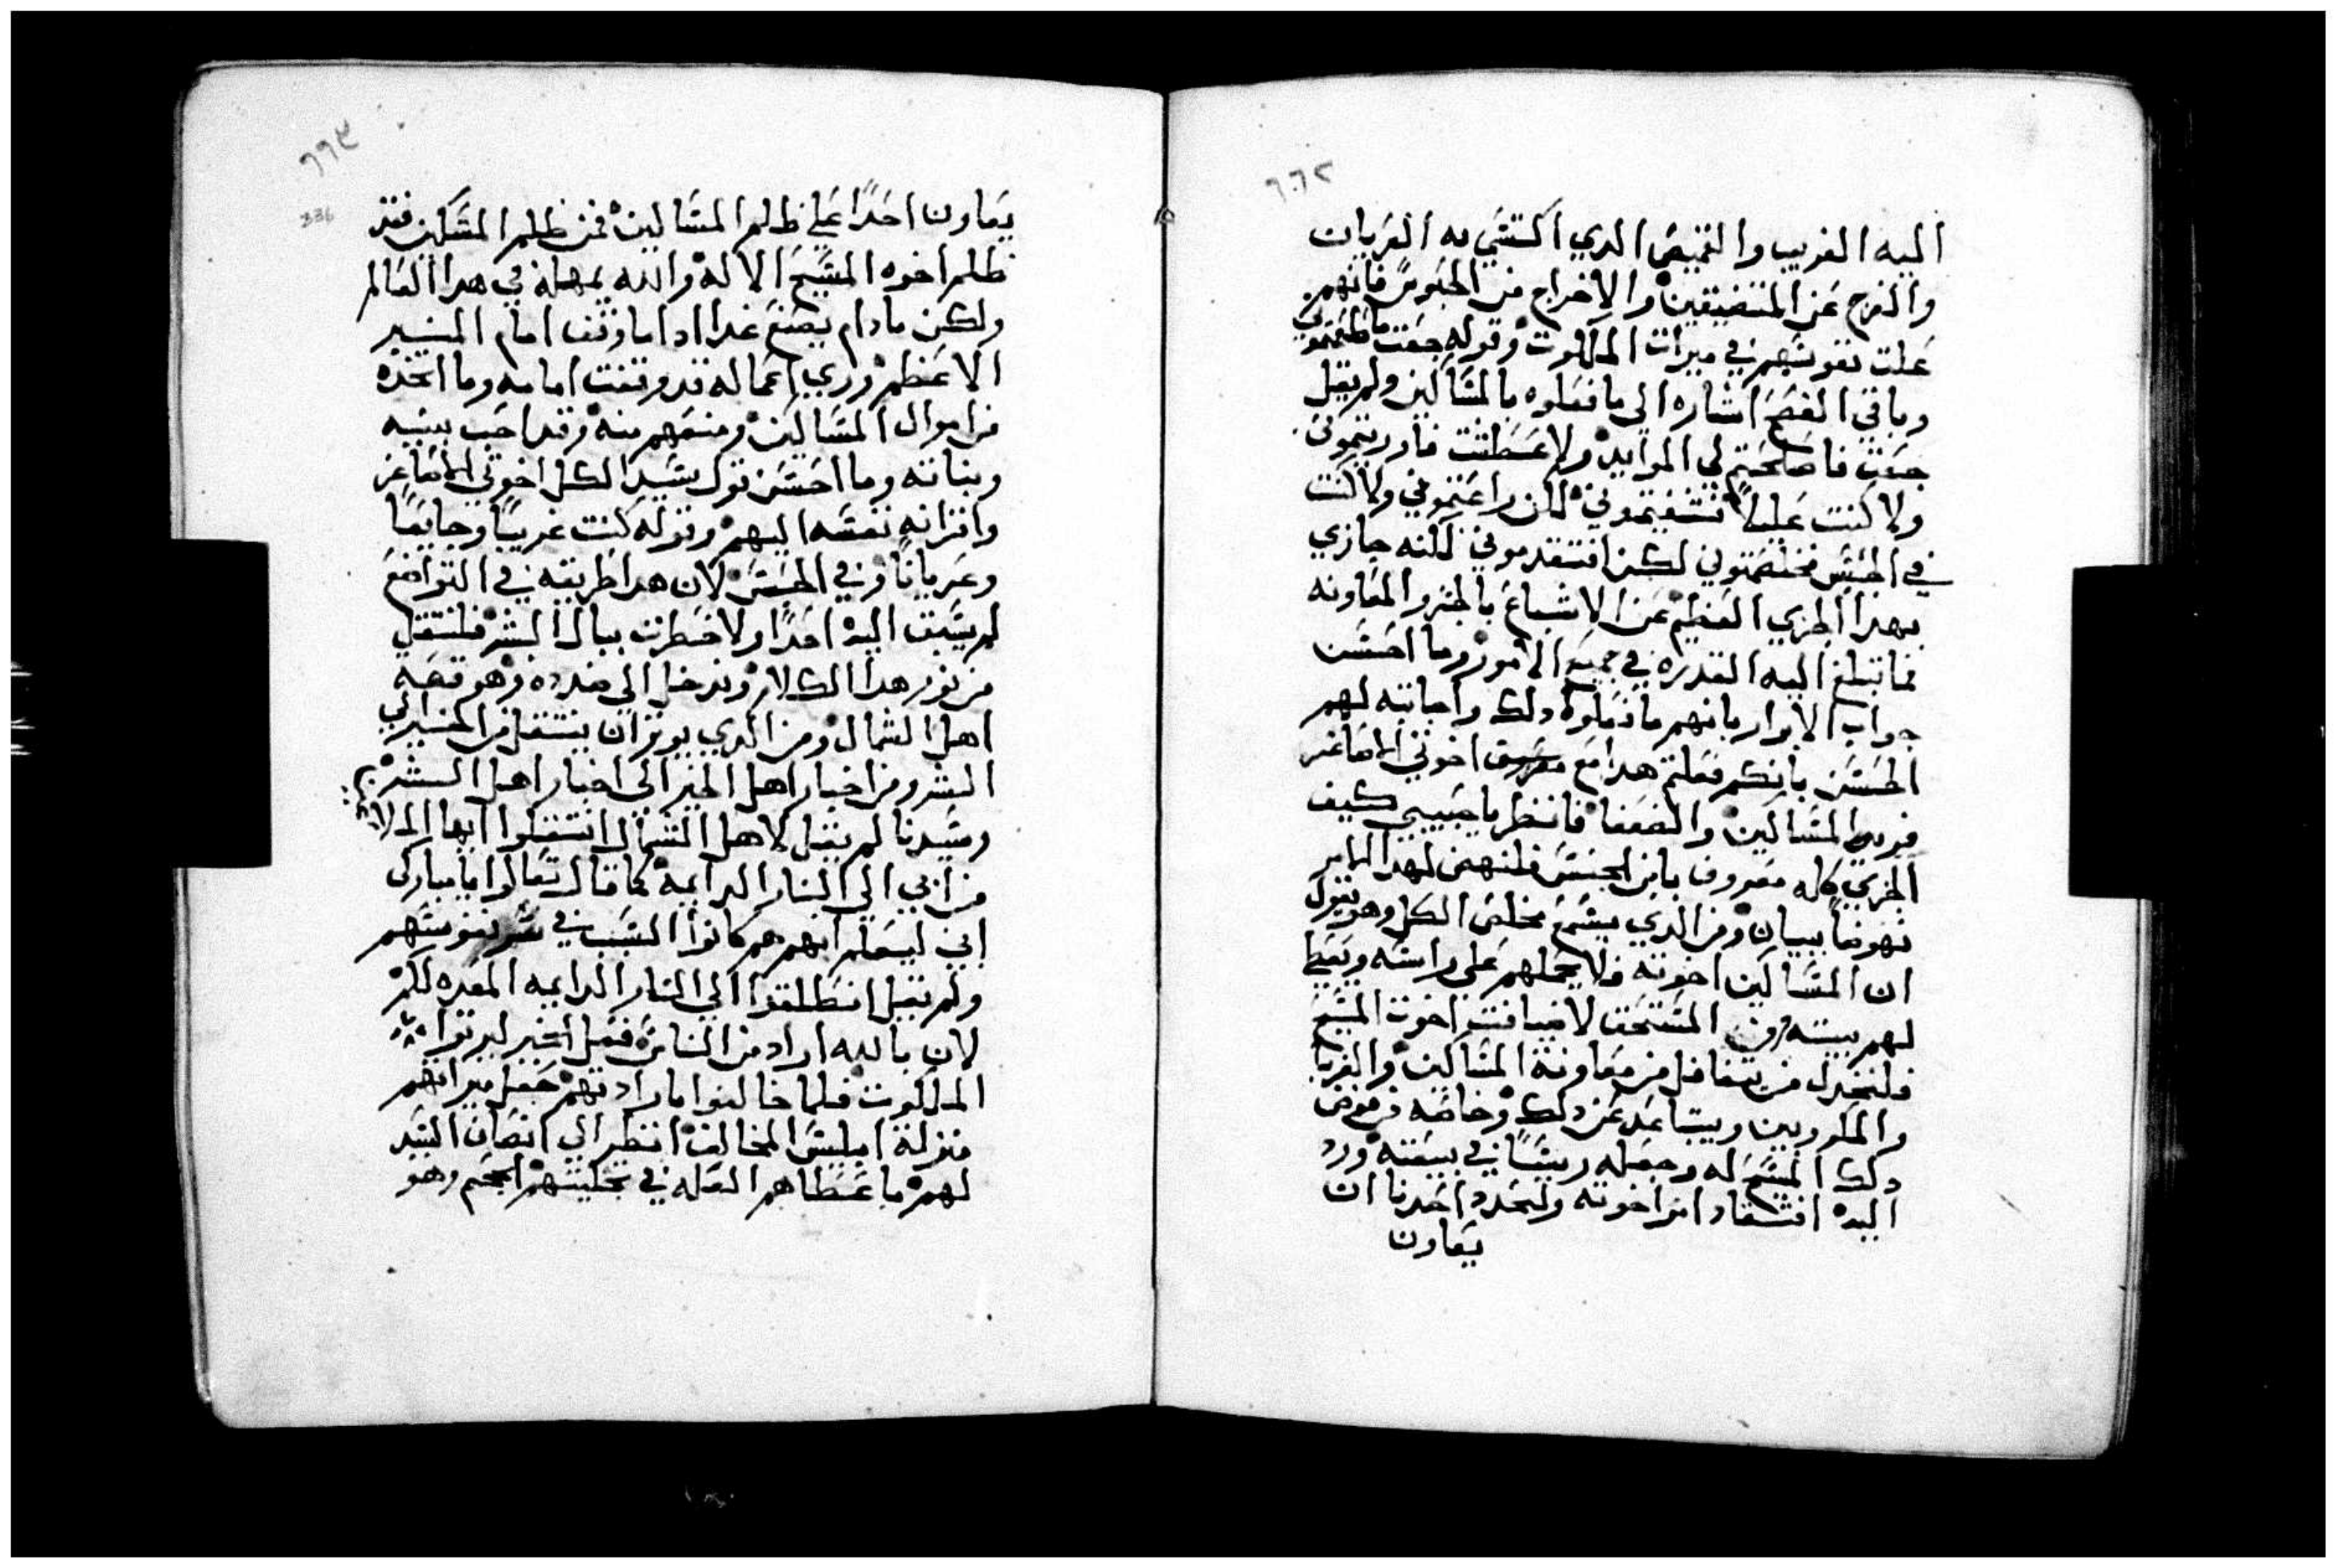 ٦٦٢
اليه الغريب والقميص الدي اكتسي به العريان
والفرج عن المتضيقين والاخراج من الحبوس فانهم
عملت نفوسهم في ميرات الملكوت وقوله جعت فاطعمتموني
وباقي الفصح اشاره الي ما فعلوه بالمساكين ولم يقل
جعت فاصلحتم لي الموايد ولا عسطشت فارويتموني
ولا كنت عليلاً فشفيتموني لكن راعيتموني ولا كنت
في الحبس فخلصتموني لكن افتقدموني لكنه جازي
بهدا الجزي العظيم عن الاشباع بالخبز والمعاونه
فما تبلغ اليه القدره في جميع الامور وما احسن
جواب الابرار بانهم ما فعلوا دلك واجابته لهم
الحسنه بانكم فعلتم هدا مع اخوتي الاصاغر
المساكين والضعفا فانظر يا حبيبي كيف
الجزي كله معروف بابن الجنس فلنهض لهدا الامر
نهوضاً ببيان ومن الدي يسمع مخلص الكل وهو يقول
ان المساكين اخوته فلا يحملهم علي راسه ويعطي
لهم بيته ومن المستحق لاضيافت اخوت المسيح
فلنحدر من يتغافل من معاونة المساكين والغربا
والمكروبين ويتباعد عن دلك وخاصه من فوض
دلك المسيح له وجعله ريسًا في بيعته ورد
اليه افتقاد امر اخوته وليحدر احدنا ان
يعاون
٦٦٣
336
يعاون احدًا علي ظلم المساكين فمن ظلم المسكين فقد
ظلم اخوه المسيح الاله والله يمهله في هدا العالم
ولكن مادام يصنع غدا ادا ما وقف امام المنبر
الاعظم وري اعماله قد وقفت امامه وما اتخده
من اموال المساكين ومنعهم منه وقد احب بنيه
وبناته وما احسن قول سيد الكل اخوتي الاصاغر
واقرانه نفسه اليهم وقوله كنت غريبًا وجايعًا
وعريانًا وفي الحبس لان هدا طريقه في التواضع
لم يسبق اليه احدًا ولا خطرت ببال البشر فلننتقل
من نور هدا الكلام وندخل الي ضده وهو قصه
اهل الشمال ومن الدي يوتران ينتقل من الخير الي
الشر ومن اخبار اهل الخير الي اخبار اهل الشر
وسيدنا لم يقل لاهل الشمال انتقلوا ايها الملا
من ابي الي النار الدايمه كما قال تعالوا يا مباركي
ابي ليعلم انهم هم كانوا السبب في شر نفوسهم
ولم يقل انطلقوا الي النار الدايمه المعده لكم
لان بالله اراد من الناس فعل الخير ليرتوا
الملكوت فلما خالفوا مارادتهم جعل ميراتهم
منزلة ابليس المخالف انظر الي انصاف السيد
لهم ما عسطاهم العله في تخليتهم الجحيم وهو